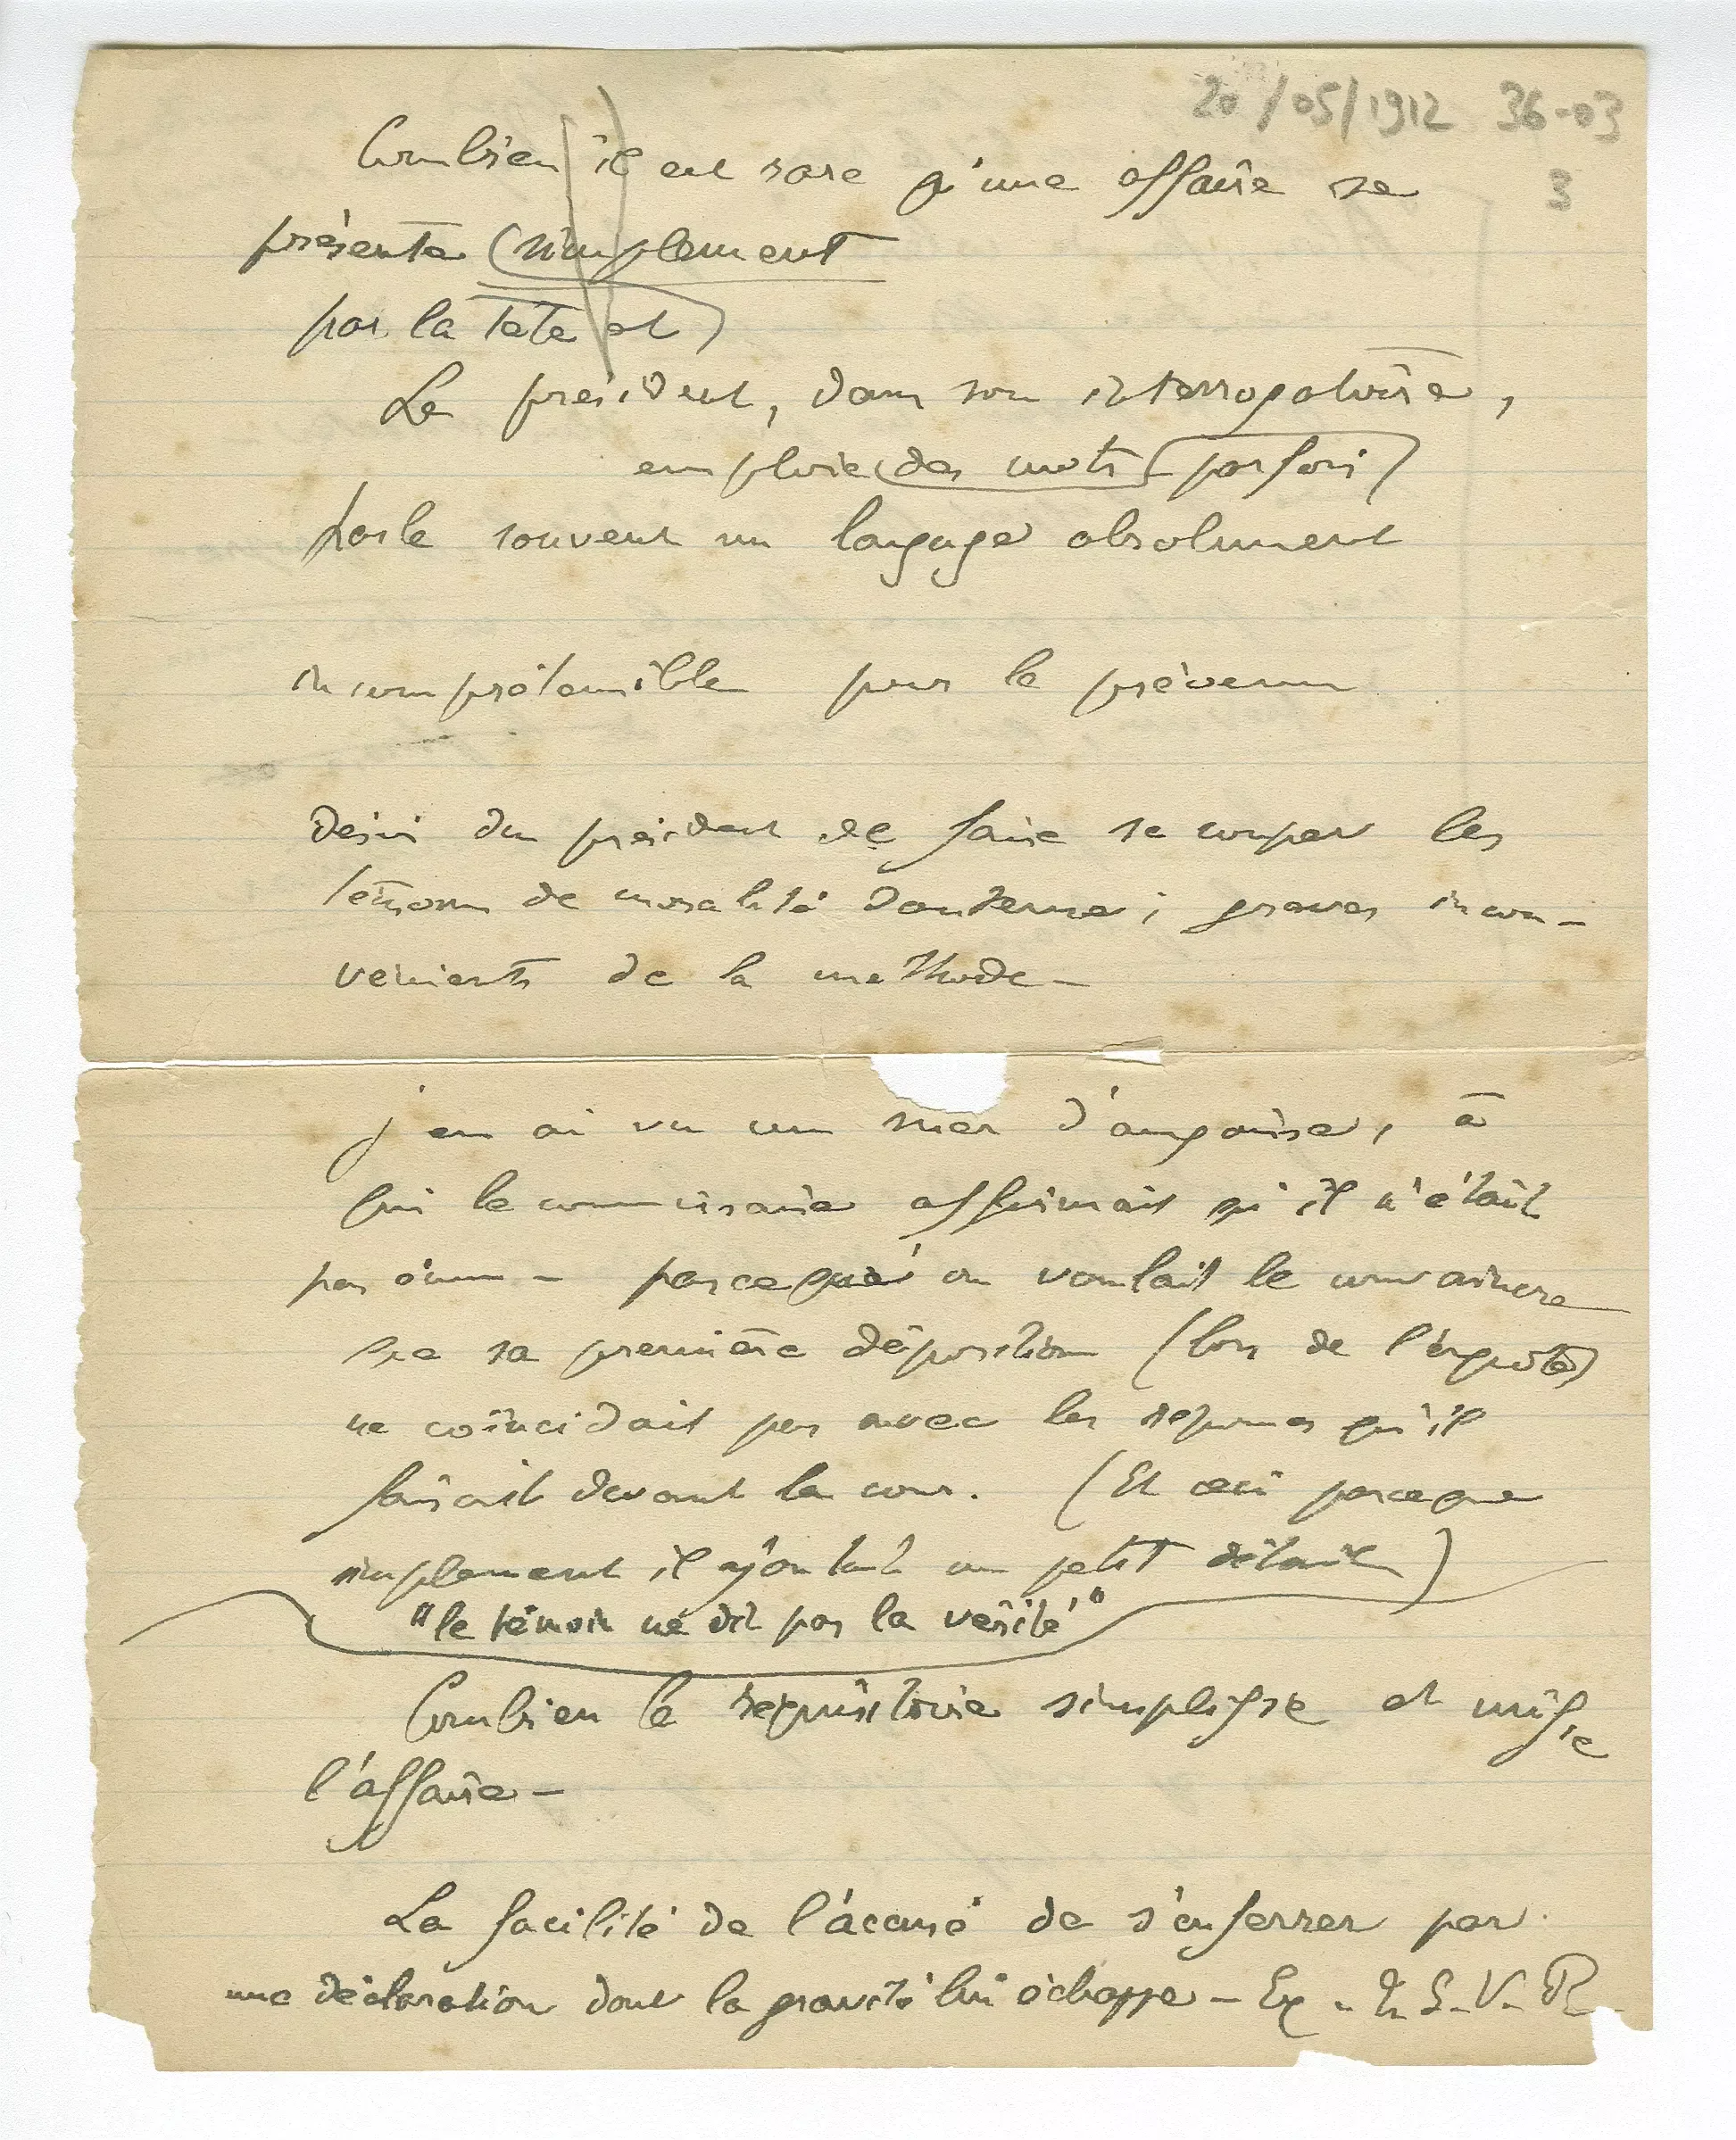 20/05/1912 36-03
3
Combien il est rare qu'une affaire se
présente simplement
par la tête et
Le président, dans son interrogatoire,
emploie des mots (parfois)
parle souvent un langage absolument
incompréhensible pour le prévenu
Désir du président de faire se couper les
témoins de moralité douteuse ; graves incon-
vénients de la méthode -
j'en ai vu un suer d'angoisse, à
qui le commissaire affirmait qu'il n'était
pas ému - parce qu'on voulait le convaincre
que sa première déposition (lors de l'enquête)
ne coïncidait pas avec les réponses qu'il
faisait devant la cour. (Et ceci parceque
simplement il ajoutait un petit détail)
"le témoin ne dit pas la vérité"
Combien le réquisitoire simplifie et unifie
l'affaire -
La facilité de l'accusé de s'enferrer par
une déclaration dont la gravité lui échappe - Ex.